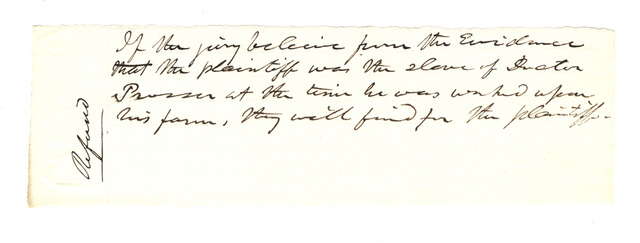 If the jury beleive from the Evidence
that the plaintiff was the slave of Doctor
Prosser at the time he was worked upon
his farm, they will find for the plaintiff-
Refused